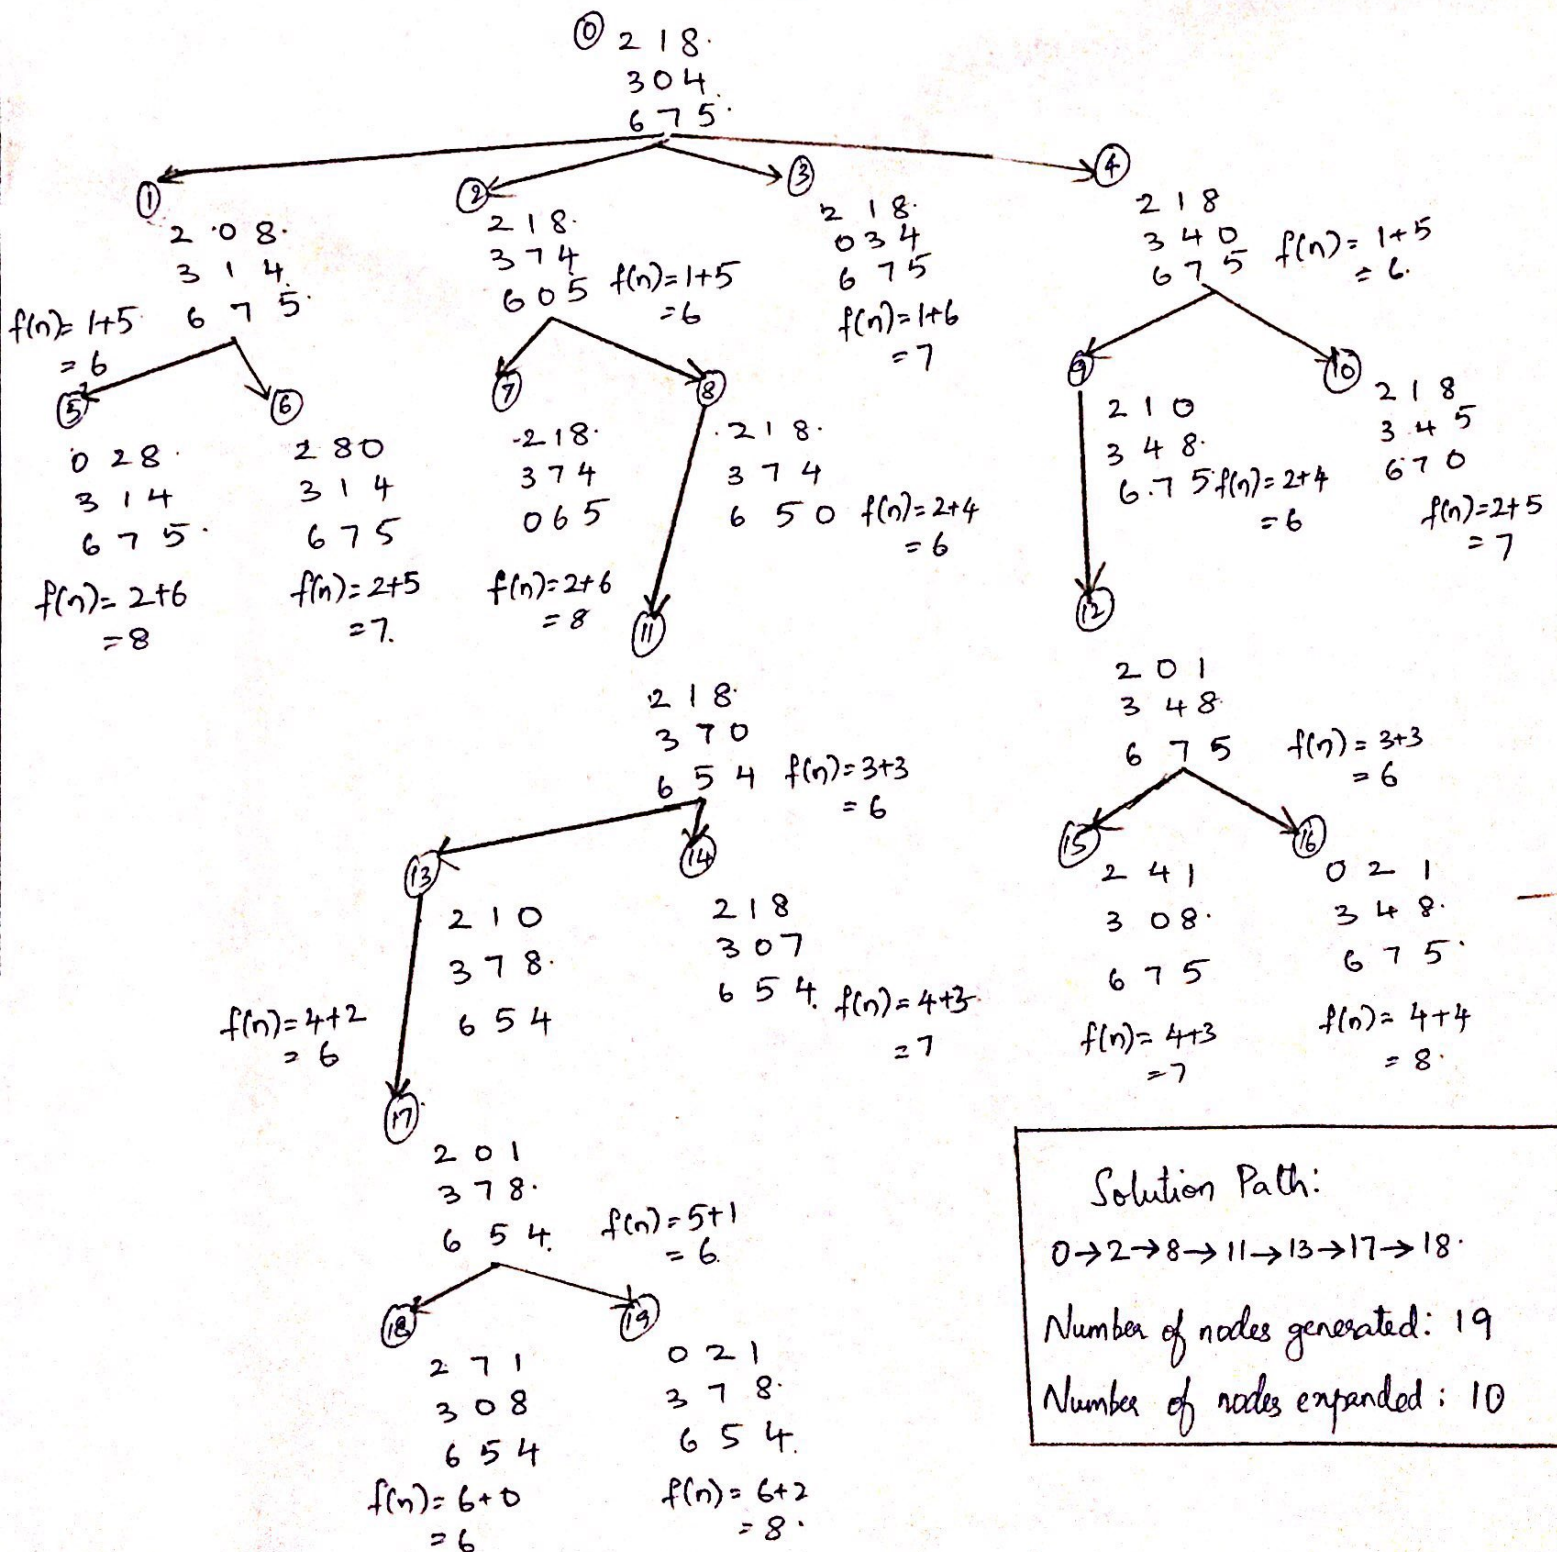 0
2 1 8
3 0 4
6 7 5
1
2 0 8
3 1 4
6 7 5
f(n)= 1+5
= 6
2
2 1 8
3 7 4
6 0 5
f(n)=1+5
=6
3
2 1 8
0 3 4
6 7 5
f(n)=1+6
=7
4
2 1 8
3 4 0
6 7 5
f(n)= 1+5
= 6.
5
0 2 8
3 1 4
6 7 5
f(n)= 2+6
=8
6
2 8 0
3 1 4
6 7 5
f(n)=2+5
=7.
7
2 1 8
3 7 4
0 6 5
f(n)=2+6
=8
8
2 1 8
3 7 4
6 5 0
f(n)=2+4
=6
9
2 1 0
3 4 8
6 7 5
f(n)=2+4
=6
10
2 1 8
3 4 5
6 7 0
f(n)=2+5
=7
11
2 1 8
3 7 0
6 5 4
f(n)=3+3
=6
12
2 0 1
3 4 8
6 7 5
f(n)=3+3
=6
13
2 1 0
3 7 8
6 5 4
f(n)=4+2
=6
14
2 1 8
3 0 7
6 5 4
f(n)=4+3
=7
15
2 4 1
3 0 8
6 7 5
f(n)= 4+3
=7
16
0 2 1
3 4 8
6 7 5
f(n)= 4+4
= 8
17
2 0 1
3 7 8
6 5 4
f(n)=5+1
= 6
18
2 7 1
3 0 8
6 5 4
f(n)=6+0
=6
19
0 2 1
3 7 8
6 5 4
f(n)= 6+2
=8
Solution Path:
0→2→8→11→13→17→18
Number of nodes generated: 19
Number of nodes expanded: 10